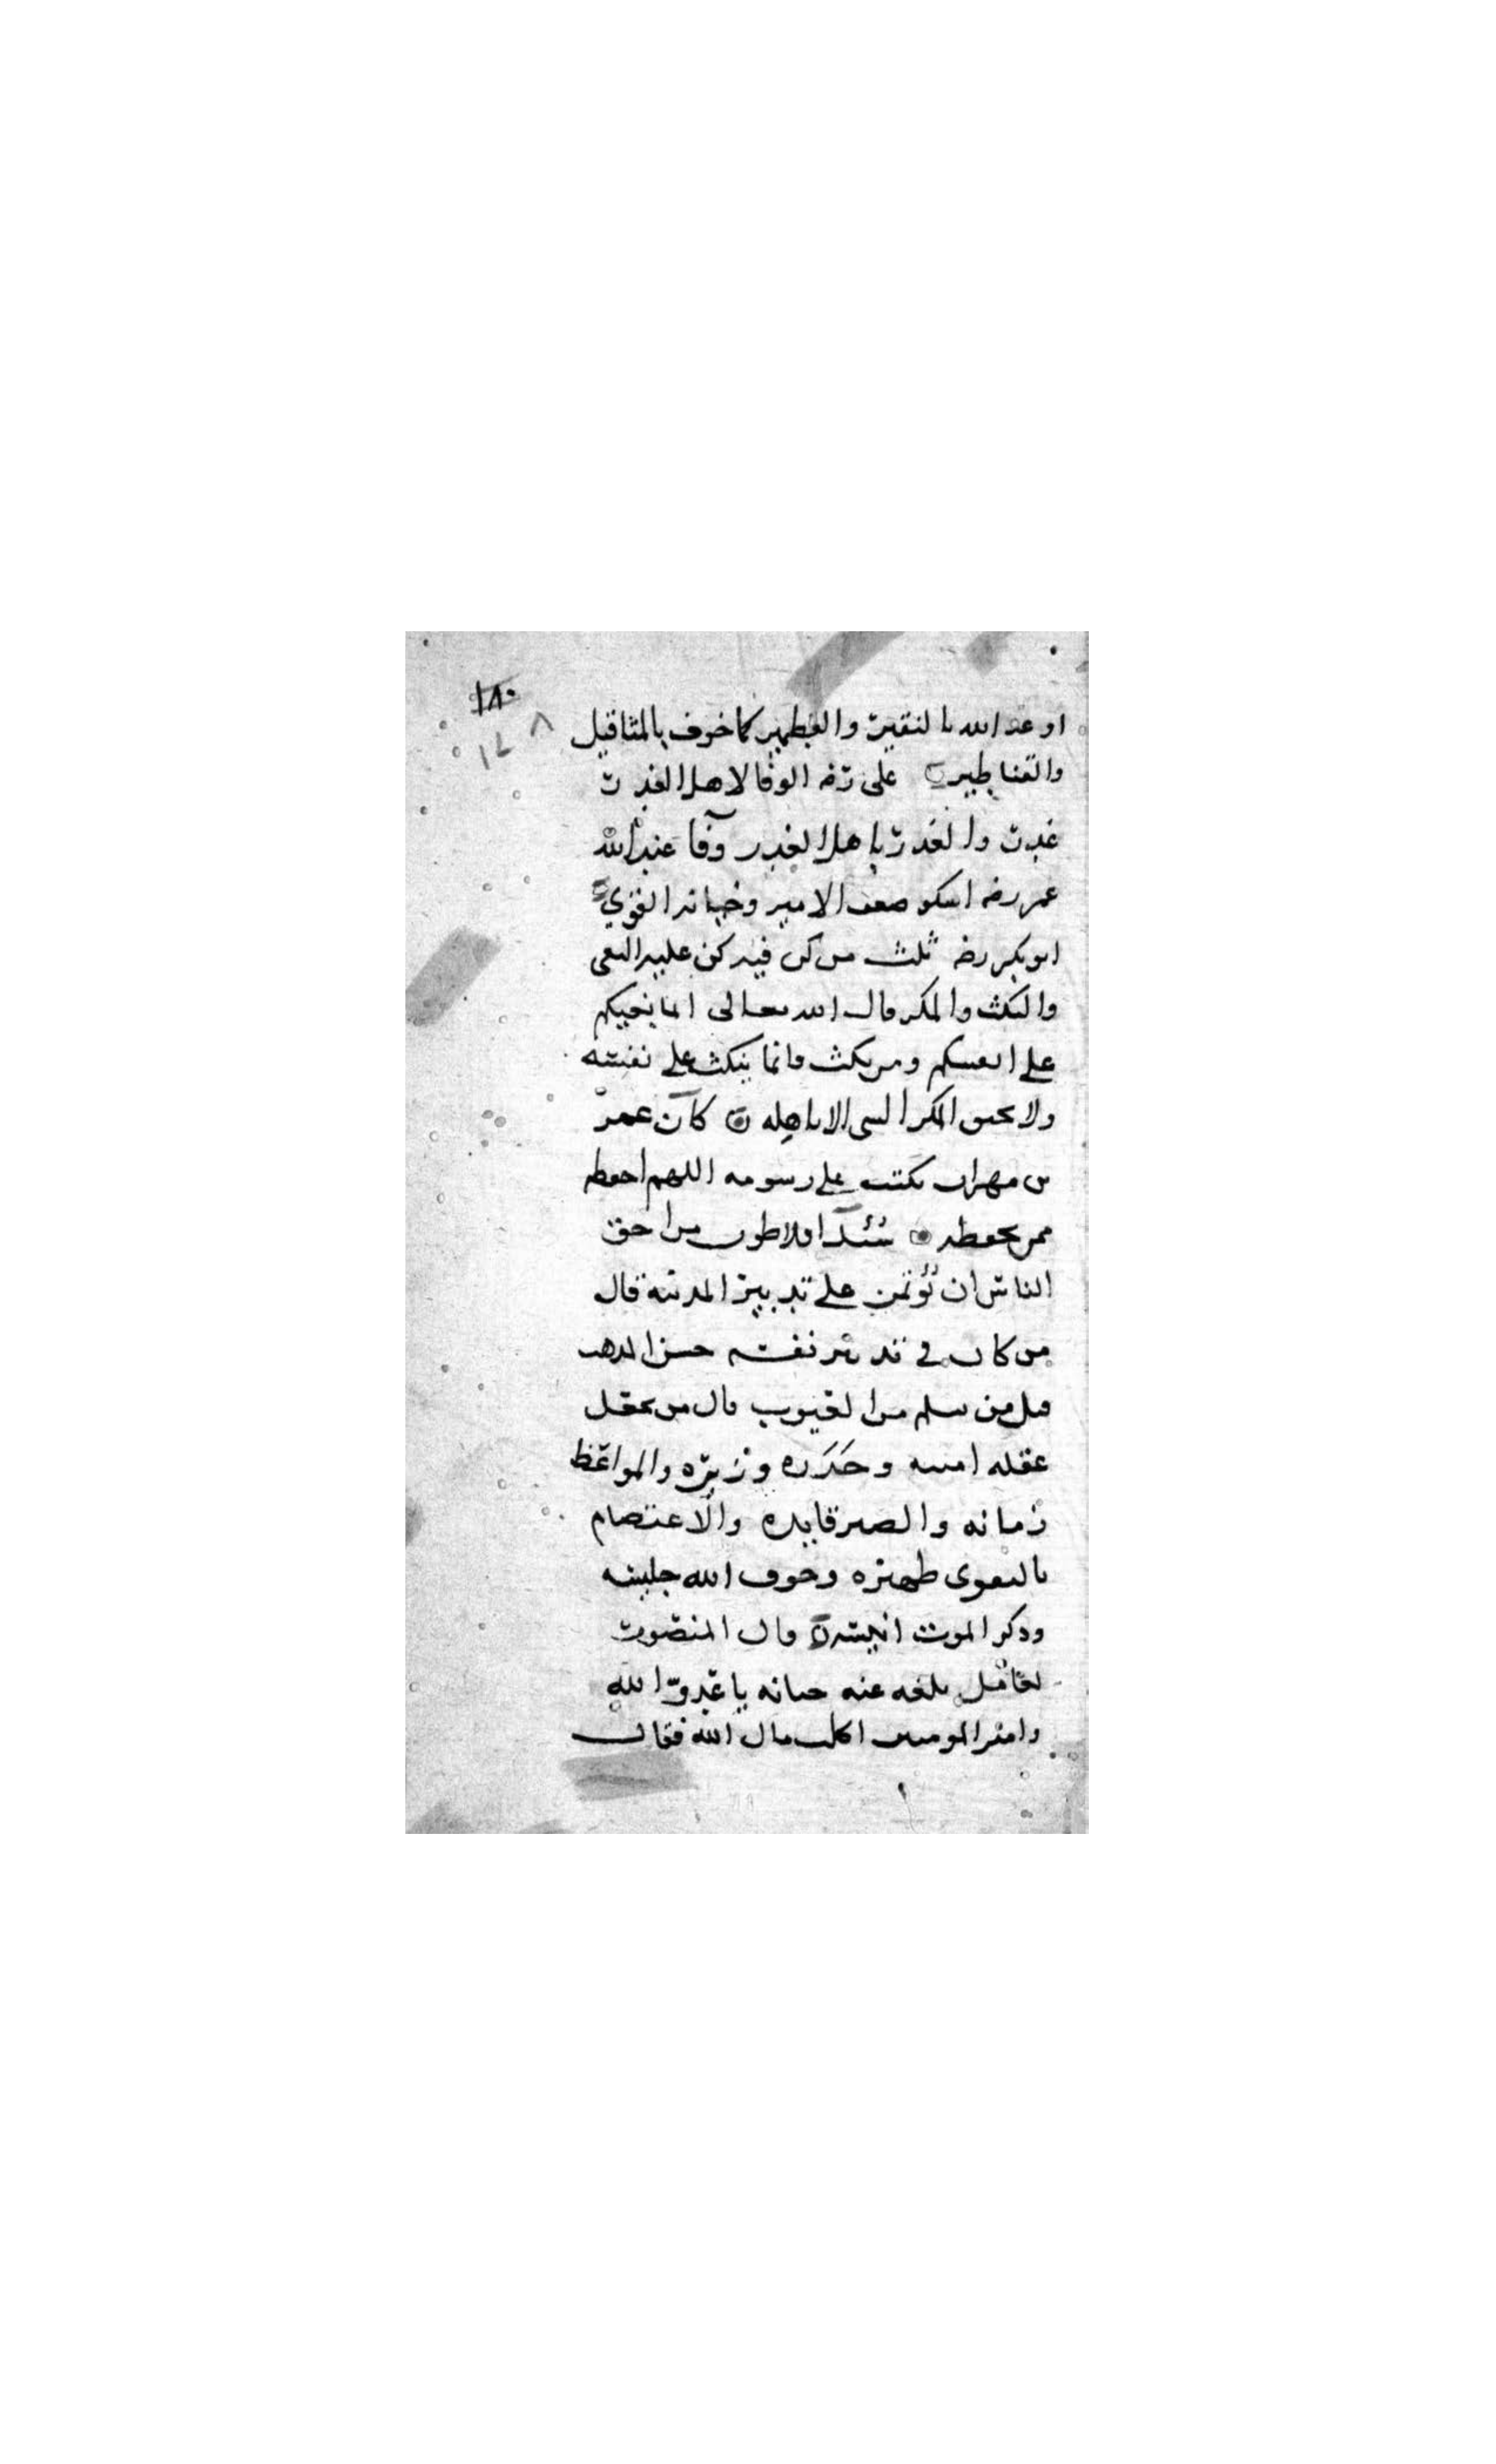 ١٨٠
٨
اوعد الله بالنقير والقطمير كما خوف بالمثاقيل
والقناطير علي رضه الوفا لاهل الغدر
غدر والغدر باهل الغدر وفا عند الله
عمر رضه اشكو ضعف الامير وخيانه القوي
ابو بكر رضه ثلث من كن فيه كن عليه البغي
والنكث والمكر قال الله تعالى انما بغيكم
على انفسكم ومن نكث فانما ينكث على نفسه
ولا يحيق المكر السي الا باهله كان عمر
بن مهران يكتب على رسومه اللهم احفظه
ممن يحفظه سئل افلاطون من احق
الناس ان يؤتمن على تدبير المدينه قال
من كان في تدبير نفسه حسن المذهب
قيل من سلم من العيوب قال من جعل
عقله امينه وحذره وزيره والمواعظ
زمانه والصبر قايده والاعتصام
بالتقوى ظهيره وخوف الله جليسه
وذكر الموت انيسه قال المنصور
لعامل بلغه عنه خيانه يا عدو الله
وامير المومنين اكلت مال الله فقال